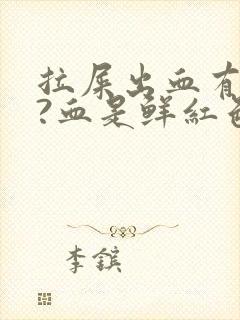 拉屎出血有
?血是鲜红色
李镔